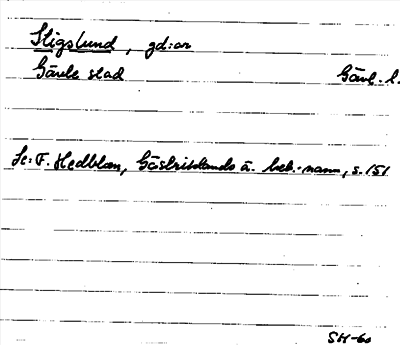 Stigslund, gd:ar
Gävle stad Gävl. l.
Se: F. Hedblom, Gästriklands ä. beb.-namn, s. 151
SH-60